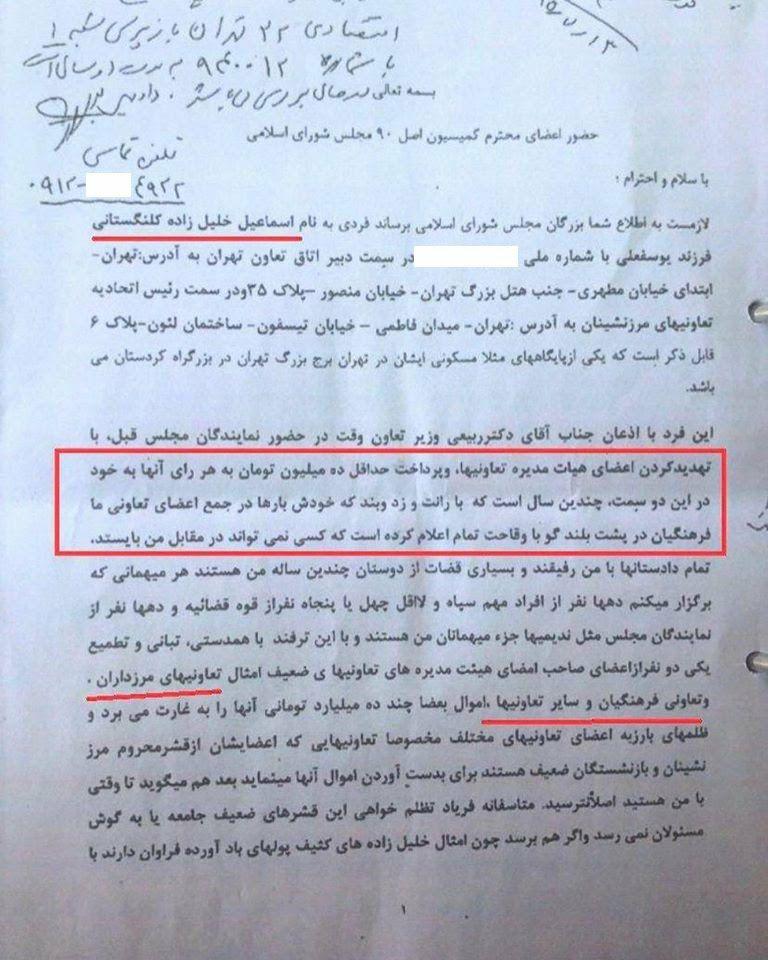 اقتصادی ۳۲ تهران بازپرسی شعبه ۱
با شماره ۹۴۰۰۱۲ به مدت ۱ سال است
بسمه تعالی
در حال بررسی می باشد
حضور اعضای محترم کمیسیون اصل ۹۰ مجلس شورای اسلامی
تلفن تماسی
۰۹۱۲- ۴۹۲۲
با سلام و احترام :
لازمست به اطلاع شما بزرگان مجلس شورای اسلامی برساند فردی به نام اسماعیل خلیل زاده کلنگستانی
فرزند یوسفعلی با شماره ملی در سمت دبیر اتاق تعاون تهران به آدرس:تهران-
ابتدای خیابان مطهری- جنب هتل بزرگ تهران- خیابان منصور –پلاک ۳۵ودر سمت رئیس اتحادیه
تعاونیهای مرزنشینان به آدرس :تهران- میدان فاطمی – خیابان تیسفون- ساختمان لئون-پلاک ۶
قابل ذکر است که یکی ازپایگاههای مثلا مسکونی ایشان در تهران برج بزرگ تهران در بزرگراه کردستان می
باشد.
این فرد با اذعان جناب آقای دکترربیعی وزیر تعاون وقت در حضور نمایندگان مجلس قبل، با
تهدیدکردن اعضای هیات مدیره تعاونیها، وپرداخت حداقل ده میلیون تومان به هر رای آنها به خود
در این دو سمت، چندین سال است که با رانت و زد وبند که خودش بارها در جمع اعضای تعاونی ما
فرهنگیان در پشت بلند گو با وقاحت تمام اعلام کرده است که کسی نمی تواند در مقابل من بایستد،
تمام دادستانها با من رفیقند و بسیاری قضات از دوستان چندین ساله من هستند هر میهمانی که
برگزار میکنم دهها نفر از افراد مهم سپاه و لااقل چهل یا پنجاه نفراز قوه قضائیه و دهها نفر از
نمایندگان مجلس مثل ندیمیها جزء میهمانان من هستند و با این ترفند با همدستی، تبانی و تطمیع
یکی دو نفرازاعضای صاحب امضای هیئت مدیره های تعاونیها ی ضعیف امثال تعاونیهای مرزداران ،
وتعاونی فرهنگیان و سایر تعاونیها ،اموال بعضا چند ده میلیارد تومانی آنها را به غارت می برد و
ظلمهای بارزبه اعضای تعاونیهای مختلف مخصوصا تعاونیهایی که اعضایشان ازقشرمحروم مرز
نشینان و بازنشستگان ضعیف هستند برای بدست آوردن اموال آنها مینماید بعد هم میگوید تا وقتی
با من هستید اصلاًنترسید. متاسفانه فریاد تظلم خواهی این قشرهای ضعیف جامعه یا به گوش
مسئولان نمی رسد واگر هم برسد چون امثال خلیل زاده های کثیف پولهای باد آورده فراوان دارند با
۱